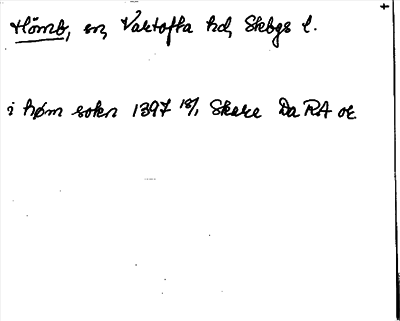 Hömb, sn, Vartofta hd, Skbgs l.
i høm sokn 1397 18/1 Skara Da RA or